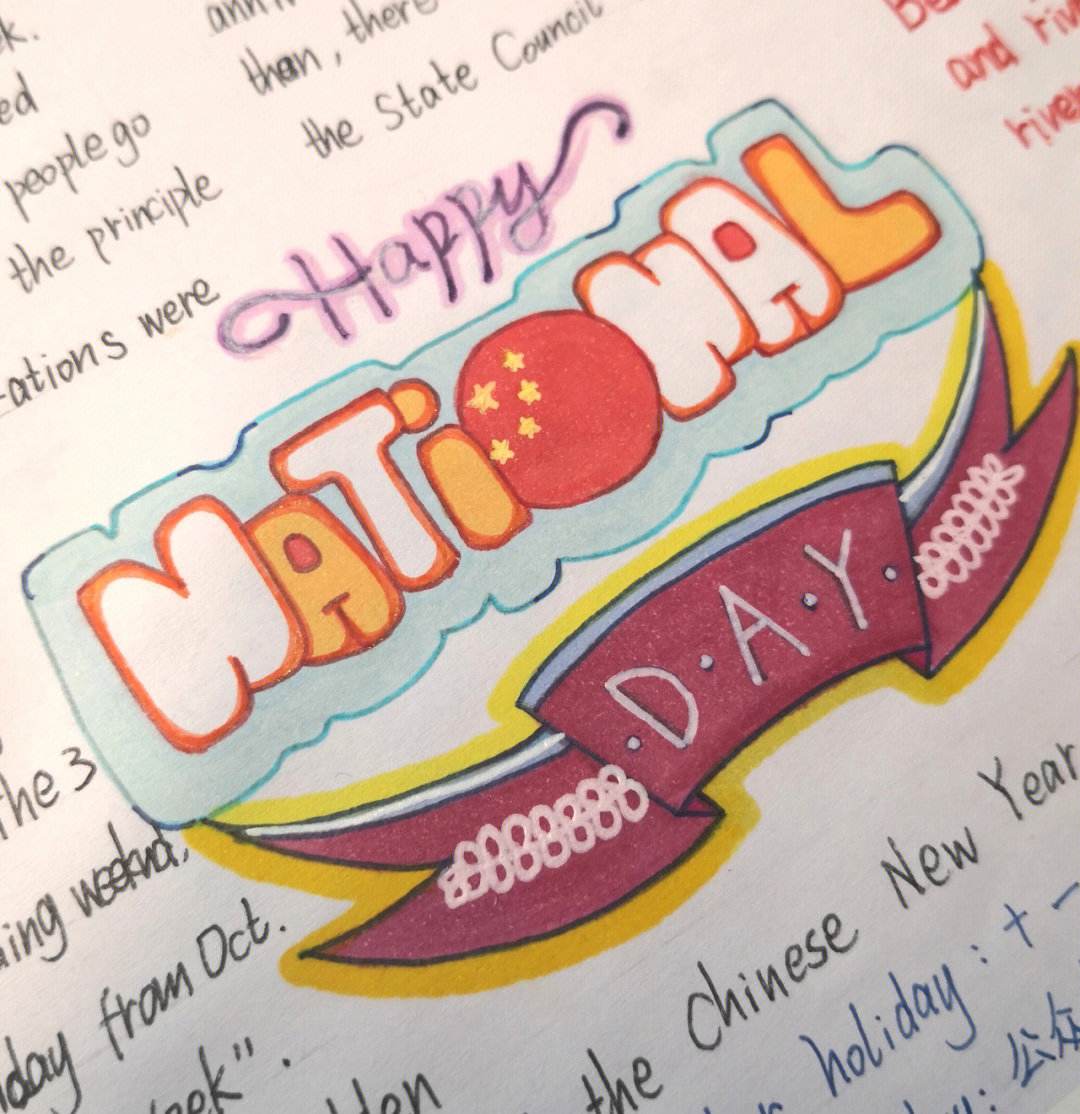 ed
people go
the principle
ations were
than, there
the State Council
and
river
Happy
NATiONAL
D·A·Y
the 3
day from Oct.
eek".
the Chinese New Year
holiday : 十一
公众